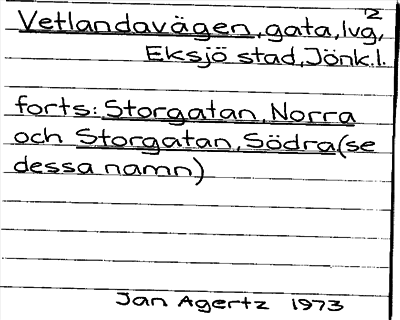 2
Vetlandavägen, gata, lvg,
Eksjö stad, Jönk.l.
forts: Storgatan, Norra
och Storgatan, Södra (se
dessa namn)
Jan Agertz 1973